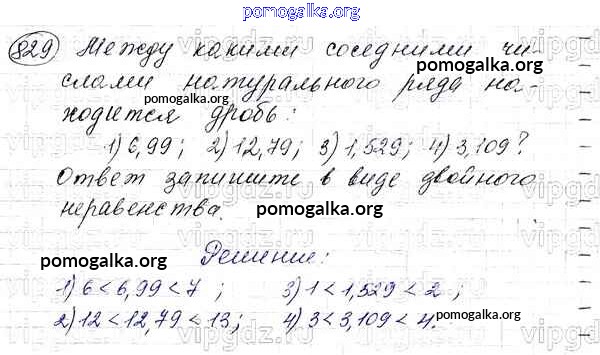 pomogalka.org
829 Между какими соседними чи-
слами натурального ряда на-
pomogalka.org
ходится дробь:
1) 6,99; 2) 12,79; 3) 1,529; 4) 3,109?
Ответ запишите в виде двойного
неравенства.
pomogalka.org
Решение:
pomogalka.org
1) 6 < 6,99 < 7 ; 3) 1 < 1,529 < 2 ;
2) 12 < 12,79 < 13; 4) 3 < 3,109 < 4.
pomogalka.org